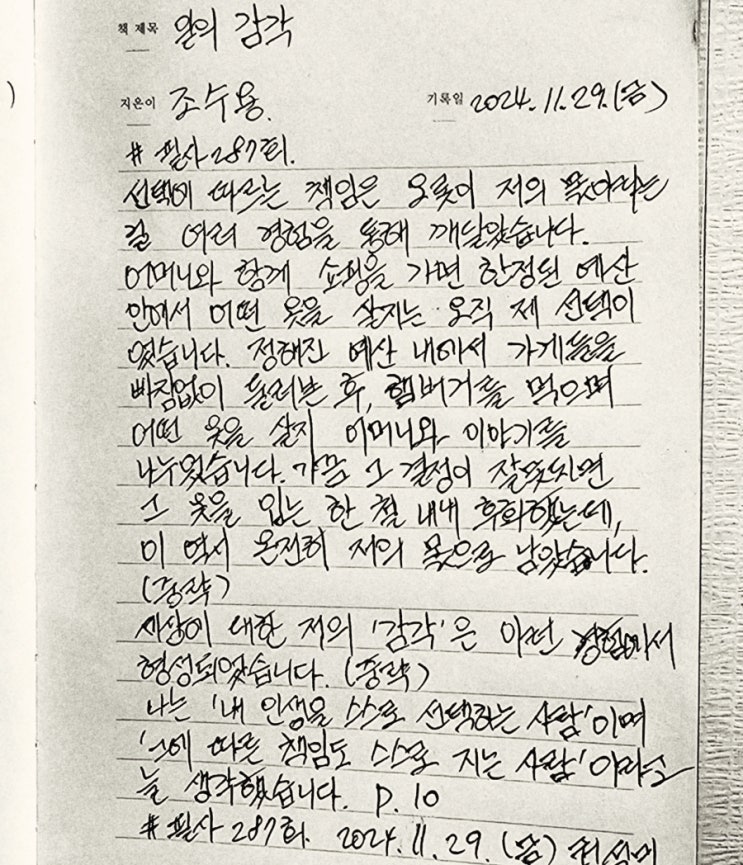 )
책 제목 일의 감각
지은이 조수용. 기록일 2024. 11. 29. (금)
# 필사 287회.
선택에 따르는 책임은 오롯이 저의 몫이라는
걸 여러 경험을 통해 깨달았습니다.
어머니와 함께 쇼핑을 가면 한정된 예산
안에서 어떤 옷을 살지는 오직 제 선택이
었습니다. 정해진 예산 내에서 가게들을
빠짐없이 둘러본 후, 햄버거를 먹으며
어떤 옷을 살지 어머니와 이야기를
나누었습니다. 가끔 그 결정이 잘못되면
그 옷을 입는 한 철 내내 후회했는데,
이 역시 온전히 저의 몫으로 남았습니다.
(중략)
세상에 대한 저의 '감각'은 이런 경험에서
형성되었습니다. (중략)
나는 '내 인생을 스스로 선택하는 사람'이며
'그에 따른 책임도 스스로 지는 사람'이라고
늘 생각했습니다. P. 10
# 필사 287회. 2024. 11. 29. (금)